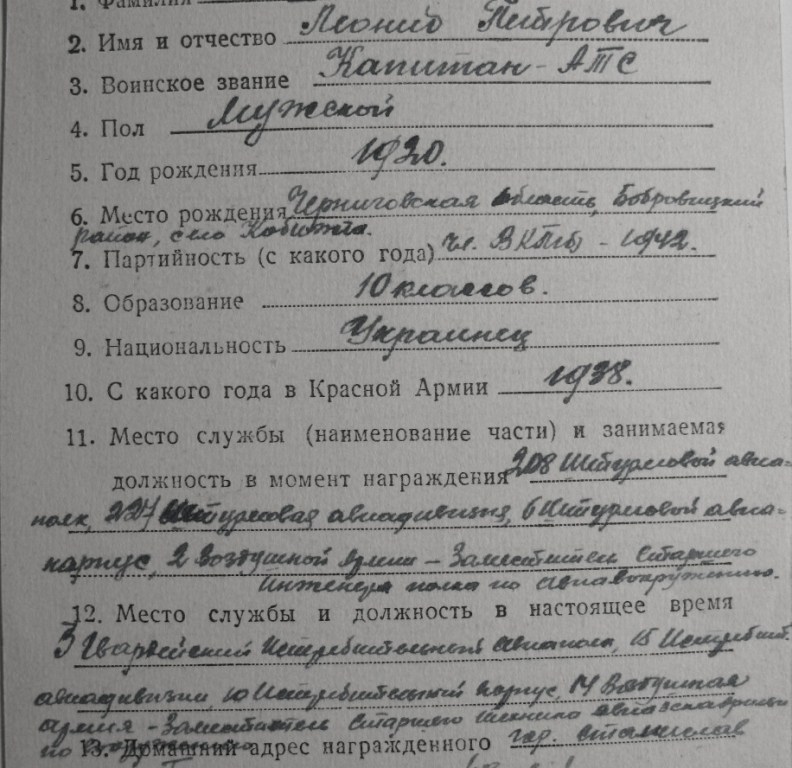 1. Фамилия
2. Имя и отчество Леонид Петрович
3. Воинское звание Капитан - АТС
4. Пол Мужской
5. Год рождения 1920.
6. Место рождения Черниговская область, Бобровицкий
район, село Кобыжта.
7. Партийность (с какого года) Чл. ВКПб - 1942.
8. Образование 10 классов.
9. Национальность Украинец
10. С какого года в Красной Армии 1938.
11. Место службы (наименование части) и занимаемая
должность в момент награждения 208 Штурмовой авиа-
полк, 227 Штурмовая авиадивизия, 6 Штурмовой авиа-
корпус, 2 Воздушной Армии - Заместитель Старшего
Инженера полка по авиавооружению.
12. Место службы и должность в настоящее время
3 Гвардейский Истребительный Авиаполк, 15 Истребит.
авиадивизии, 10 Истребительный корпус, 14 Воздушная
армия - Заместитель Старшего техника авиаэскадрильи
по
13. Домашний адрес награжденного гор. Станислав